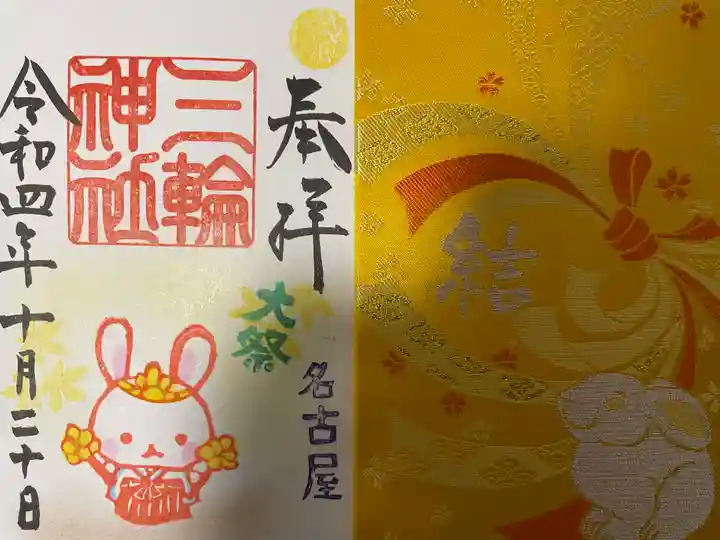 奉拝
名古屋
大祭
三輪
神社
令和四年十月二十日
結